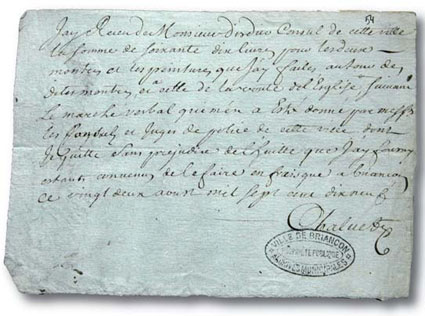 54
Jay Receu de Monsieur Consul de cette ville
la somme de soixante dix livres pour les deux
montres et les peintures que Jay faites autour des
dites montres et celle de la voute de l'Eglise suivant
Le marche verbal qui m'en a Este donne par mess
les Consuls et Juges de police de cette ville dont
Je quitte sans prejudice de l'huille que Jay fourny
estant convenu de le faire en fresque a briancon
ce vingt deux aoust mil sept cent dix neuf
VILLE DE BRIANÇON
ARCHIVES MUNICIPALES